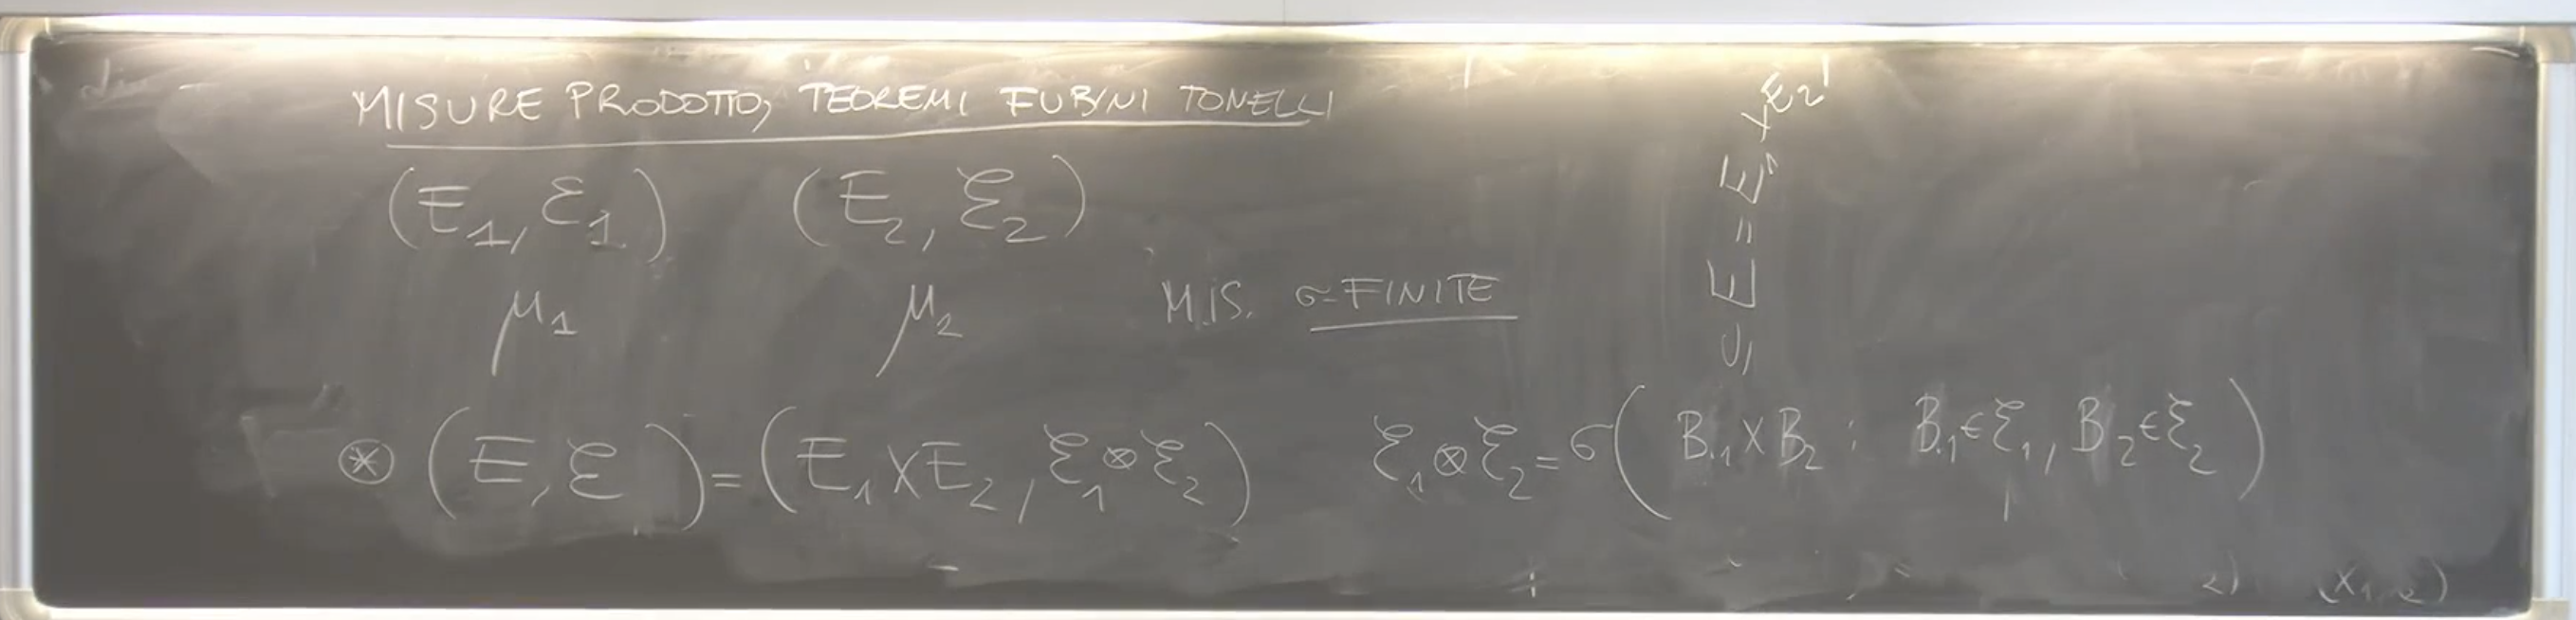 MISURE PRODOTTO, TEOREMI FUBINI TONELLI
(E₁, ℰ₁) (E₂, ℰ₂)
μ₁ μ₂ MIS. σ-FINITE
⊛ (E, ℰ) = (E₁ X E₂, ℰ₁ ⊗ ℰ₂) ℰ₁ ⊗ ℰ₂ = σ( B₁ X B₂ : B₁ ∈ ℰ₁, B₂ ∈ ℰ₂ )
⊆ E = E₁ x E₂